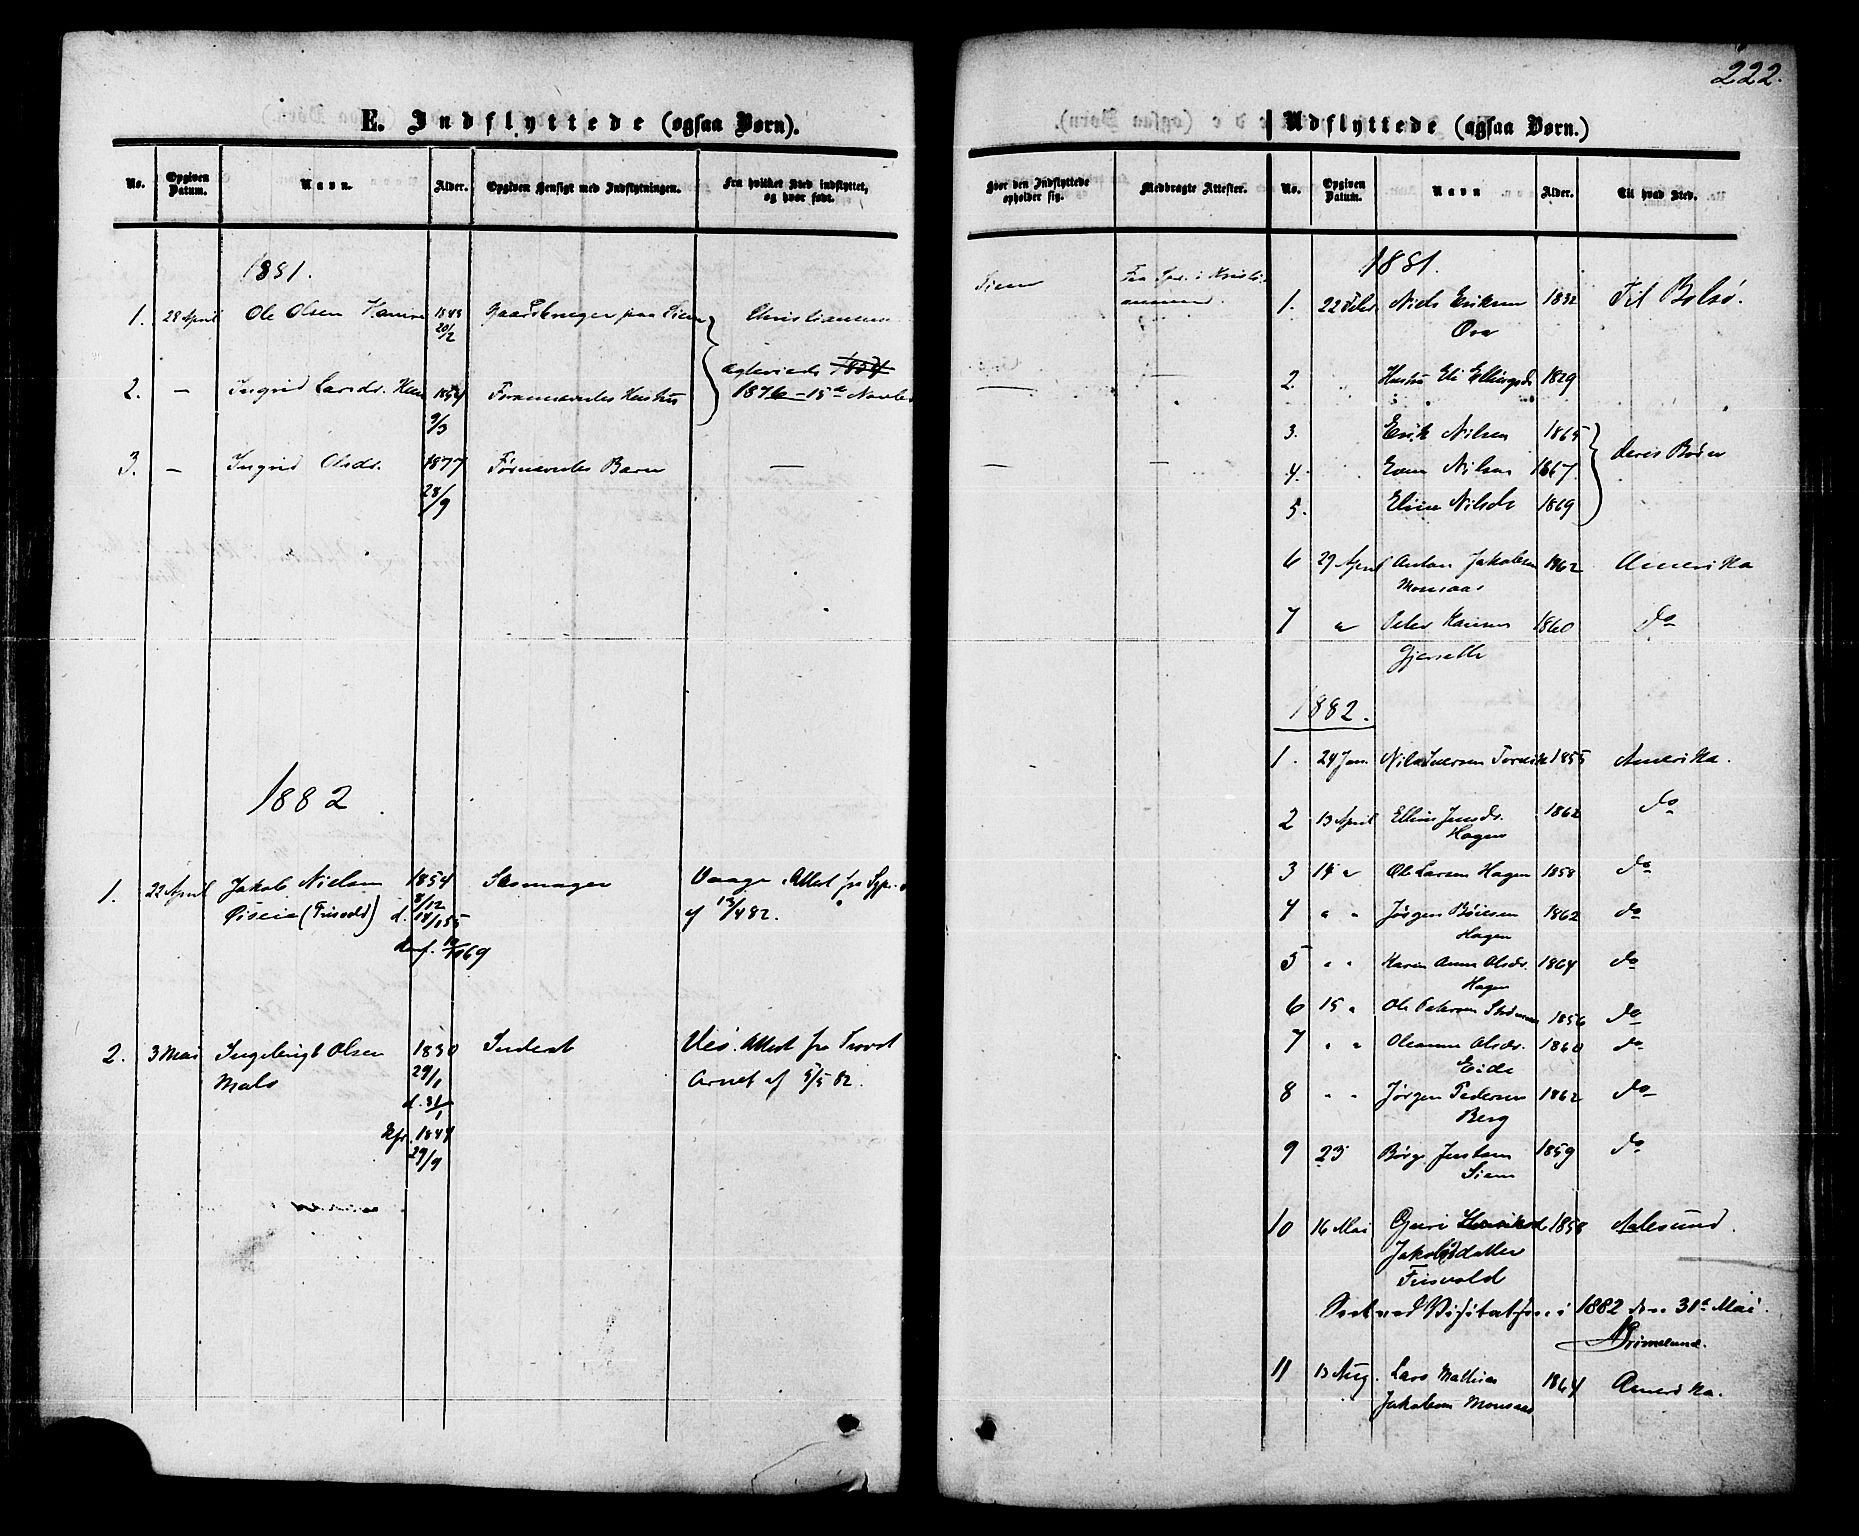 222.
E. Indflyttede (ogsaa Børn).
No. Opgiven Datum. Navn. Alder. Opgiven Hensigt med Indflytningen. Fra hvilket Sted indflyttet, og hvor født.
1881.
1. 28 April Ole Olsen 1843 Gaardbruger paa Siem Christiansund
20/2
Ægteviede
2. — Ingrid Larsdr. 1854 Fornævntes Hustru 1876 – 15de Novbr
9/3
3. — Ingrid Olsdr. 1877 Fornævntes Barn —
28/9
1882
1. 22 April Jakob Nielsen 1854 Skomager Vaage. Attest fra Spr.
(Frisvold) 8/12 af 13/4 82.
d. 14/1 55
conf. 69
2. 3 Mai Ingebrigt Olsen 1830 Inderst Veø. Attest fra Provst
Mals 29/1 Arnet af 5/5 82.
d. 31/1
Kfr. 1844
29/9
Udflyttede (ogsaa Børn.)
Hvor den Indflyttede opholder sig. Medbragte Attester. No. Opgiven Datum. Navn Alder. Til hvad Sted.
Siem Fra Spr. i Kristi-
ansund.
— —
— —
1881.
1. 22 Febr Niels Eriksen 1832 Til Bolsø.
2. Hustru Eli Ellingsdr 1829
3. Erik Nilsen 1865
4. Even Nilsen 1867. deres Børn
5. Eline Nilsdr 1869
6 29 April Anton Jakobsen 1862 Amerika
Monsaas
7 " Peder Hansen 1860 do
Gjerseth
1882.
1. 24 Jan. Nils Iversen Torvik 1855 Amerika.
2 13 April Ellen Jensdr. 1862 do
Hagen
3 14 " Ole Larsen Hagen 1858 do
4 " " Jørgen Bøiesen 1862 do
Hagen
5 " " Karen Anne Olsdr. 1864 do
Hagen
6 15 " Ole Petersen 1856 do
7 " " Oleanna Olsdr. 1860 do
Eide
8 " " Jørgen Pedersen 1862 do
Berg
9 23 Børge Jentsen 1859 do
Siem
10 16 Mai Guri 1858 Aalesund.
Jakobsdatter
Frisvold
Seet ved Visitatsen i 1882 den 31te Mai.
Grimelund.
11 13 Aug. Lars Mathias 1864 Amerika.
Jakobsen Monsaas